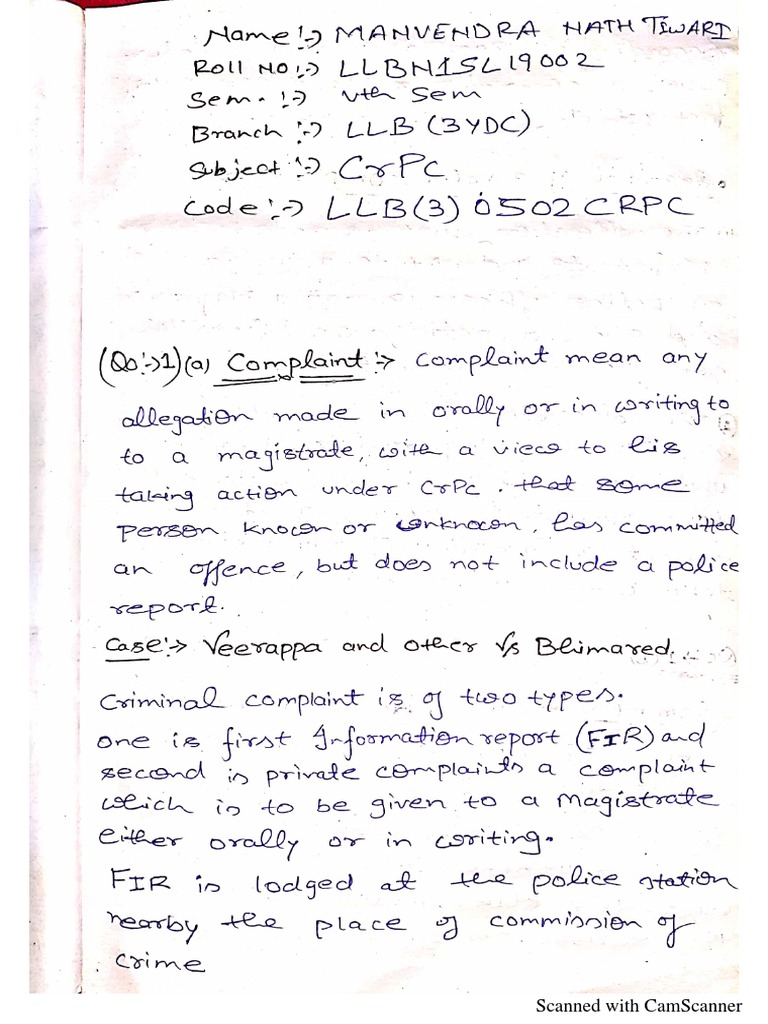 Name :-> MANVENDRA NATH TIWARI
Roll No :-> LLBN1SL19002
Sem. :-> Vth Sem
Branch :-> LLB (3YDC)
Subject :-> CrPc
Code :-> LLB(3) 0502 CRPC
(Qo:->1) (a) Complaint :-> Complaint mean any
allegation made in orally or in writing to
to a magistrate, with a view to his
taking action under CrPc. that some
person known or unknown, has committed
an offence, but does not include a police
report.
Case :-> Veerappa and other v/s Bhimared.
Criminal complaint is of two types.
one is first Information report (FIR) and
second is private complaints a complaint
which is to be given to a Magistrate
either orally or in writing.
FIR is lodged at the police station
nearby the place of commission of
crime
Scanned with CamScanner